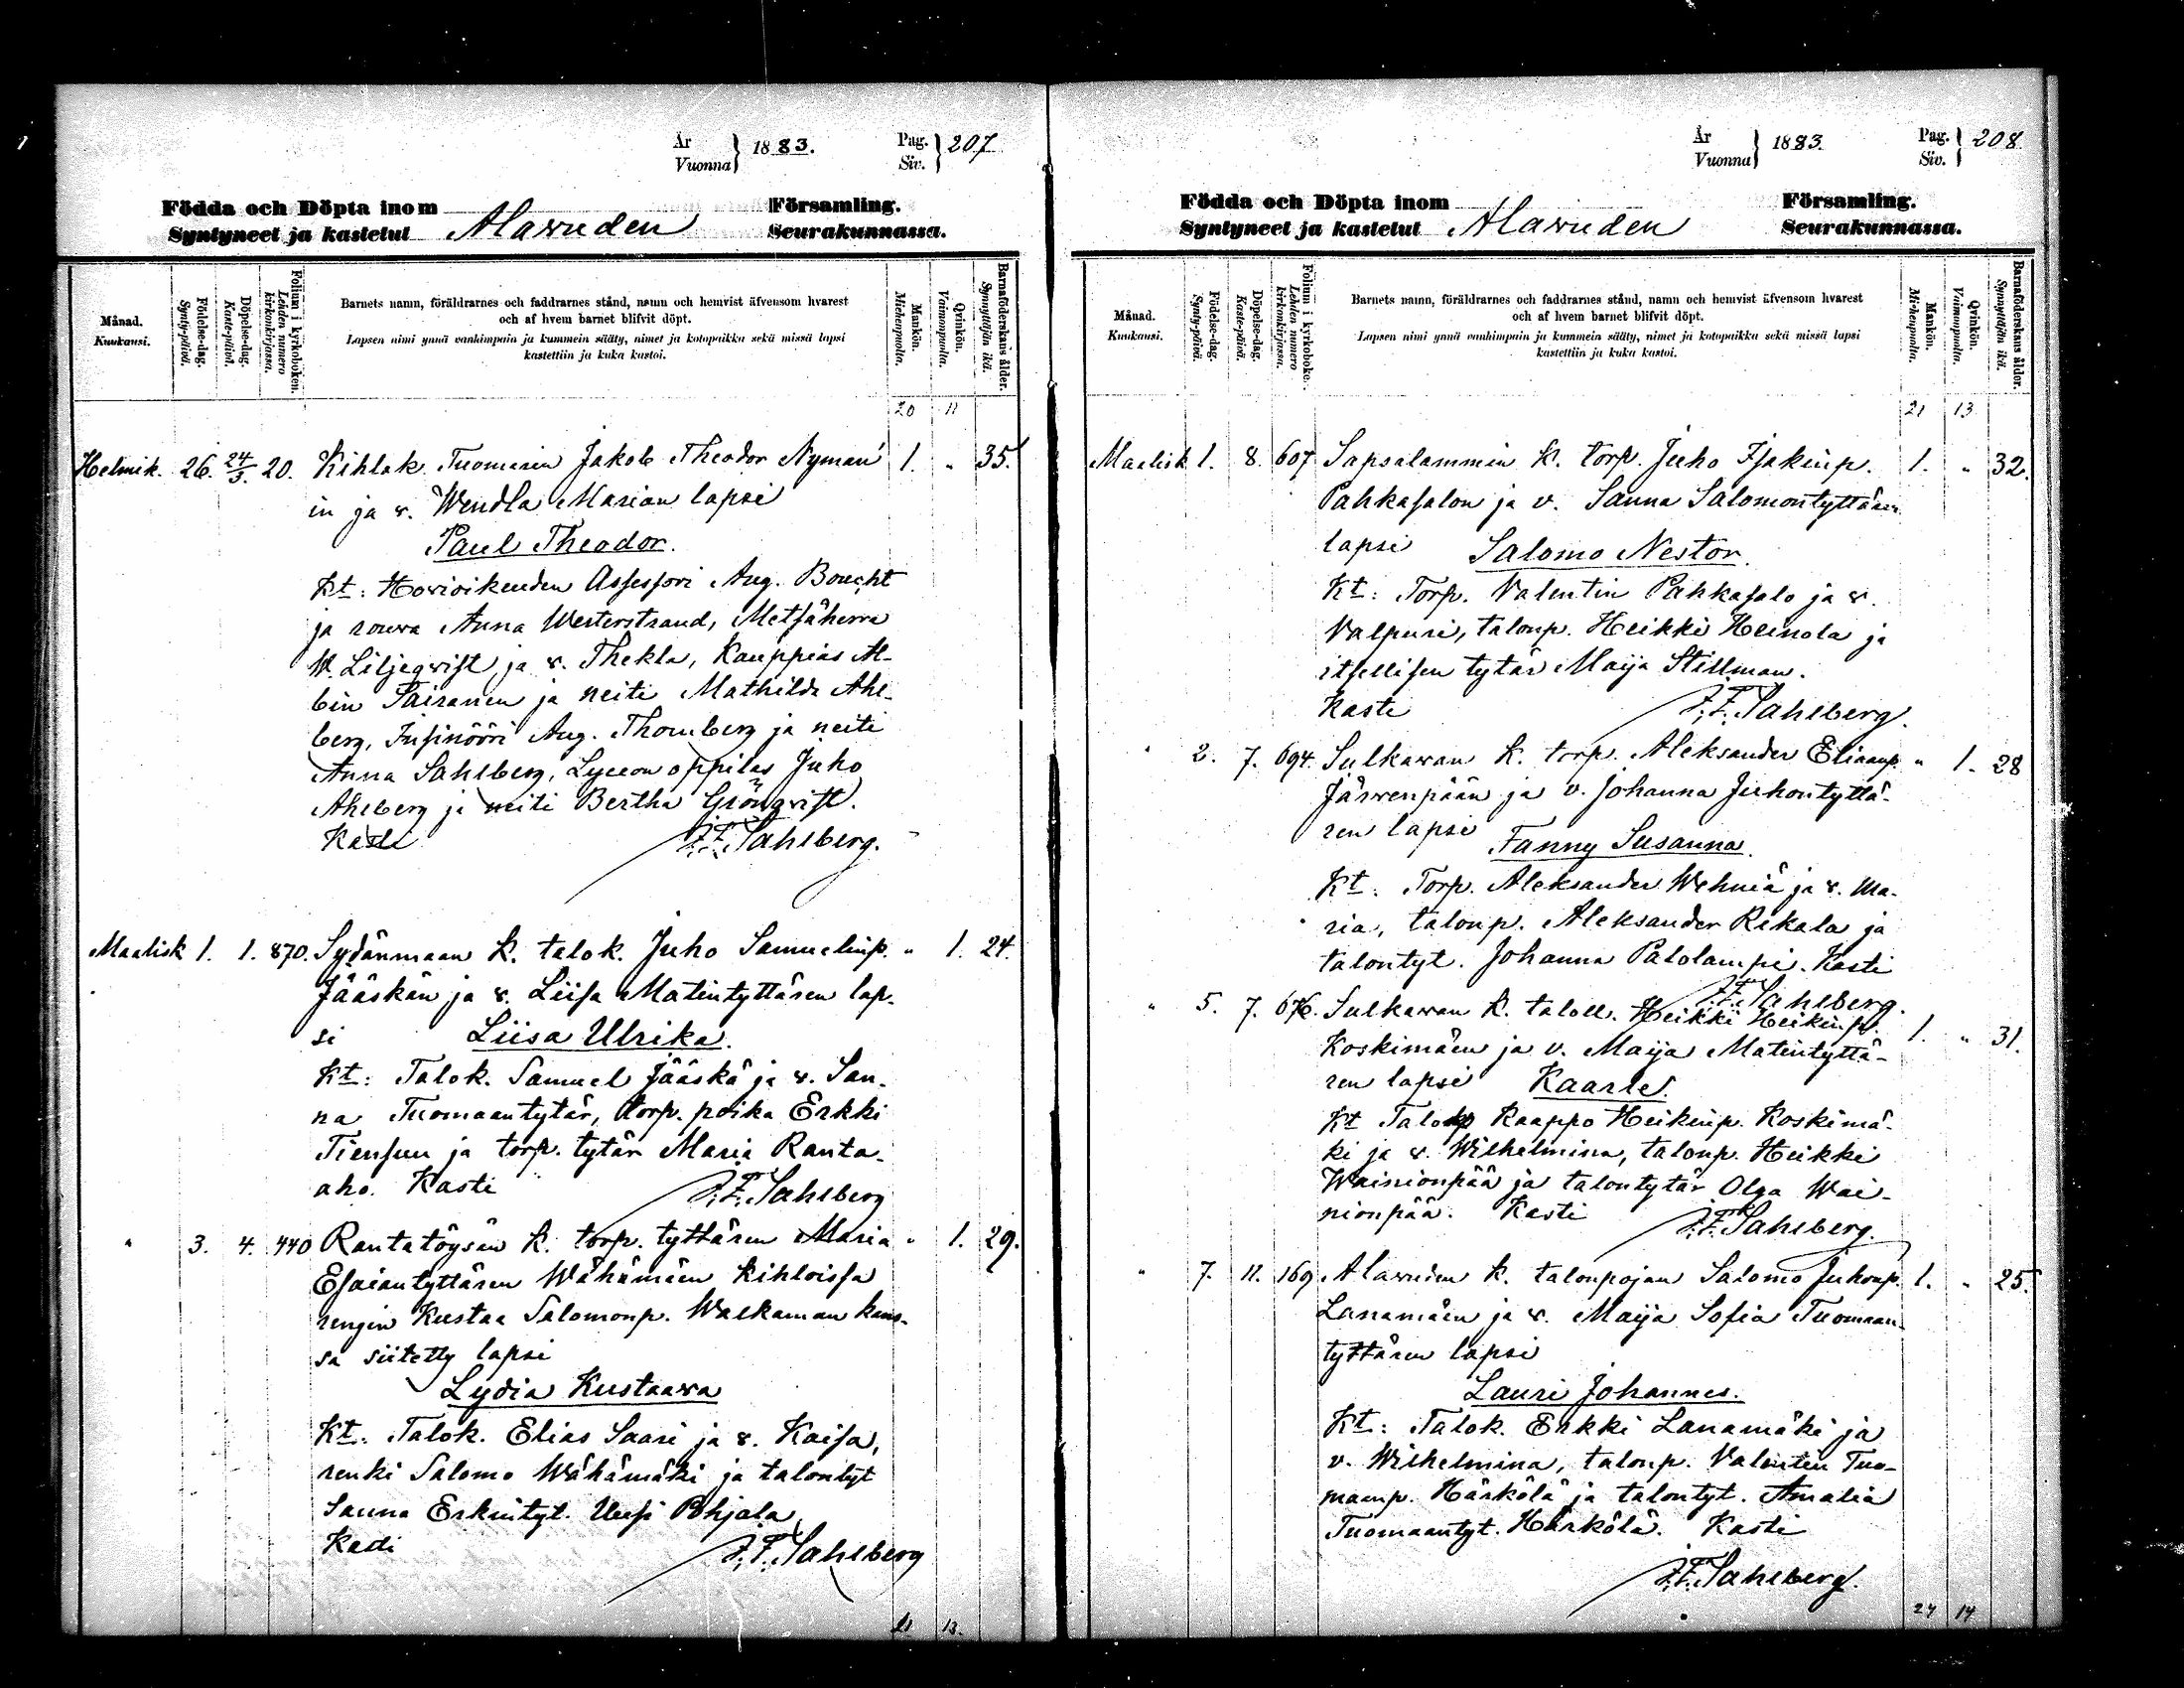 År
Vuonna } 1883.
Pag.
Siv. } 207
Födda och Döpta inom
Syntyneet ja kastetut Alavuden
Församling.
Seurakunnassa.
Månad.
Kuukausi.
Födelse-dag.
Synty-päivä.
Döpelse-dag.
Kaste-päivä.
Folium i kyrkoboken.
Lehden numero kirkonkirjassa.
Barnets namn, föräldrarnes och faddrarnes stånd, namn och hemvist äfvensom hvarest
och af hvem barnet blifvit döpt.
Lapsen nimi ynnä vanhimpain ja kummein sääty, nimet ja kotopaikka sekä missä lapsi
kastettiin ja kuka kastoi.
Mankön.
Miehenpuolta.
Qvinkön.
Vaimonpuolta.
Barnaföderskans ålder.
Synnyttäjän ikä.
20 11
Helmik. 26. 24/3. 20. Kihlak. Tuomarin Jakob Theodor Nyman' 1. " 35.
in ja v. Wendla Marian lapsi
Paul Theodor.
Kt: Hovioikeuden Assessori Aug. Boucht
ja rouva Anna Westerstrand, Metsäherra
W. Liljeqvist ja v. Thekla, Kauppias Al-
bin Sairanen ja neiti Mathilda Ahl-
berg, Insinööri Aug. Thomberg ja neiti
Anna Sahlberg, Lyceon oppilas Juho
Ahlberg ja neiti Bertha Grönqvist.
Kasti J. F. Sahlberg.
Maalisk 1. 1. 870. Sydänmaan k. talok. Juho Samuelinp. " 1. 24.
Jääskän ja v. Liisa Matintyttären lap-
si Liisa Ulrika.
Kt: Talok. Samuel Jääskä ja v. San-
na Tuomaantytär, torp. poika Erkki
Tiensuu ja torp. tytär Maria Ranta-
aho. Kasti J. F. Sahlberg
" 3. 4. 440 Rantatöysän k. torp. tyttären Maria " 1. 29.
Esaiantyttären Wähämäen kihloissa
rengin Kustaa Salomonp. Walkaman kans-
sa siitetty lapsi
Lydia Kustaava
Kt: Talok. Elias Saari ja v. Kaisa,
renki Salomo Wähämäki ja talontyt
Sanna Erkintyt. Uusi Pohjala
Kasti J. F. Sahlberg
21 13.
År
Vuonna } 1883.
Pag.
Siv. } 208
Födda och Döpta inom
Syntyneet ja kastetut Alavuden
Församling.
Seurakunnassa.
Månad.
Kuukausi.
Födelse-dag.
Synty-päivä.
Döpelse-dag.
Kaste-päivä.
Folium i kyrkoboke.
Lehden numero kirkonkirjassa.
Barnets namn, föräldrarnes och faddrarnes stånd, namn och hemvist äfvensom hvarest
och af hvem barnet blifvit döpt.
Lapsen nimi ynnä vanhimpain ja kummein sääty, nimet ja kotopaikka sekä missä lapsi
kastettiin ja kuka kastoi.
Mankön.
Miehenpuolta.
Qvinkön.
Vaimonpuolta.
Barnaföderskans ålder.
Synnyttäjän ikä.
21 13
Maalisk 1. 8. 607 Sapsalammin k. torp. Juho Isakinp. 1. " 32.
Pahkasalon ja v. Sanna Salomontyttären
lapsi Salomo Nestor.
Kt: Torp. Valentin Pahkasalo ja v.
Valpuri, talonp. Heikki Heinola ja
itsellisen tytär Maija Stillman.
Kasti J. F. Sahlberg.
" 2. 7. 694. Sulkavan k. torp. Aleksander Eliaanp. " 1. 28
Järwenpään ja v. Johanna Juhontyttä-
ren lapsi Fanny Susanna.
Kt: Torp. Aleksander Wehniä ja v. Ma-
ria, talonp. Aleksander Rekala ja
talontyt. Johanna Palolampi. Kasti
J. F. Sahlberg.
" 5. 7. 676. Sulkavan k. taloll. Heikki Heikinp. 1. " 31.
Koskimäen ja v. Maija Matintyttä-
ren lapsi Kaarle.
Kt Kaappo Heikinp. Koskimä-
ki ja v. Wilhelmina, talonp. Heikki
Wainionpää ja talontytär Olga Wai-
nionpää. Kasti J. F. Sahlberg.
" 7. 11. 169 Alavuden k. talonpojan Salomo Juhonp. 1. " 25.
Lanamäen ja v. Maija Sofia Tuomaan-
tyttären lapsi
Lauri Johannes.
Kt: Talok. Erkki Lanamäki ja
v. Wilhelmina, talonp. Valentin Tuo-
maanp. Härkölä ja talontyt. Amalia
Tuomaantyt. Härkölä. Kasti
J. F. Sahlberg.
24 14